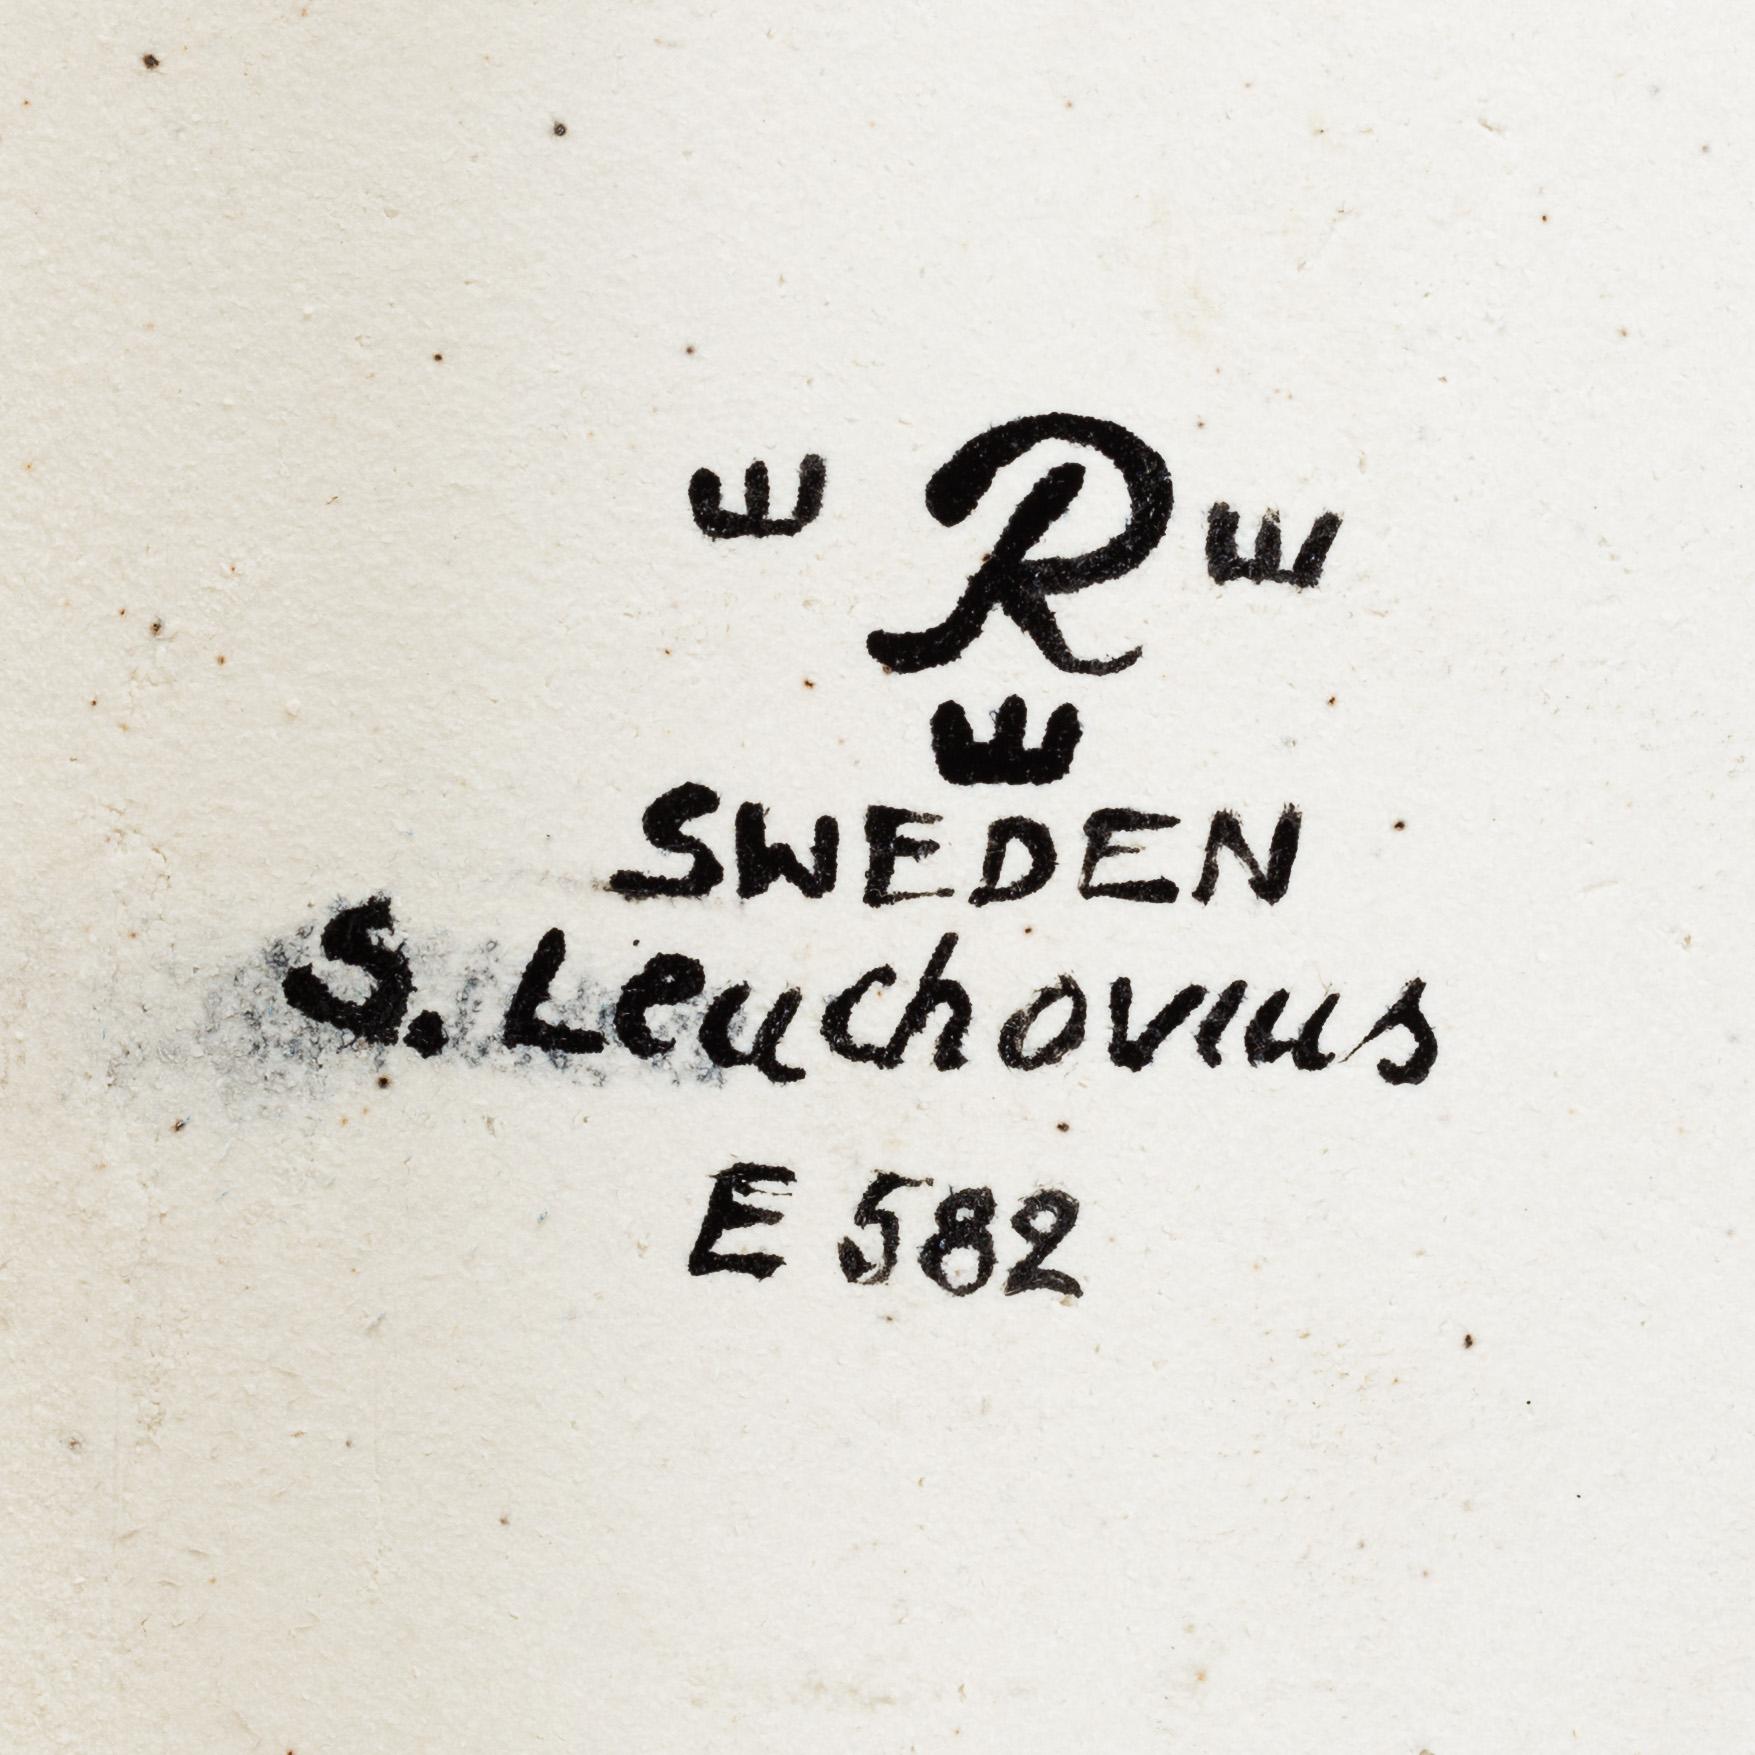 R
SWEDEN
S. Leuchovius
E 582